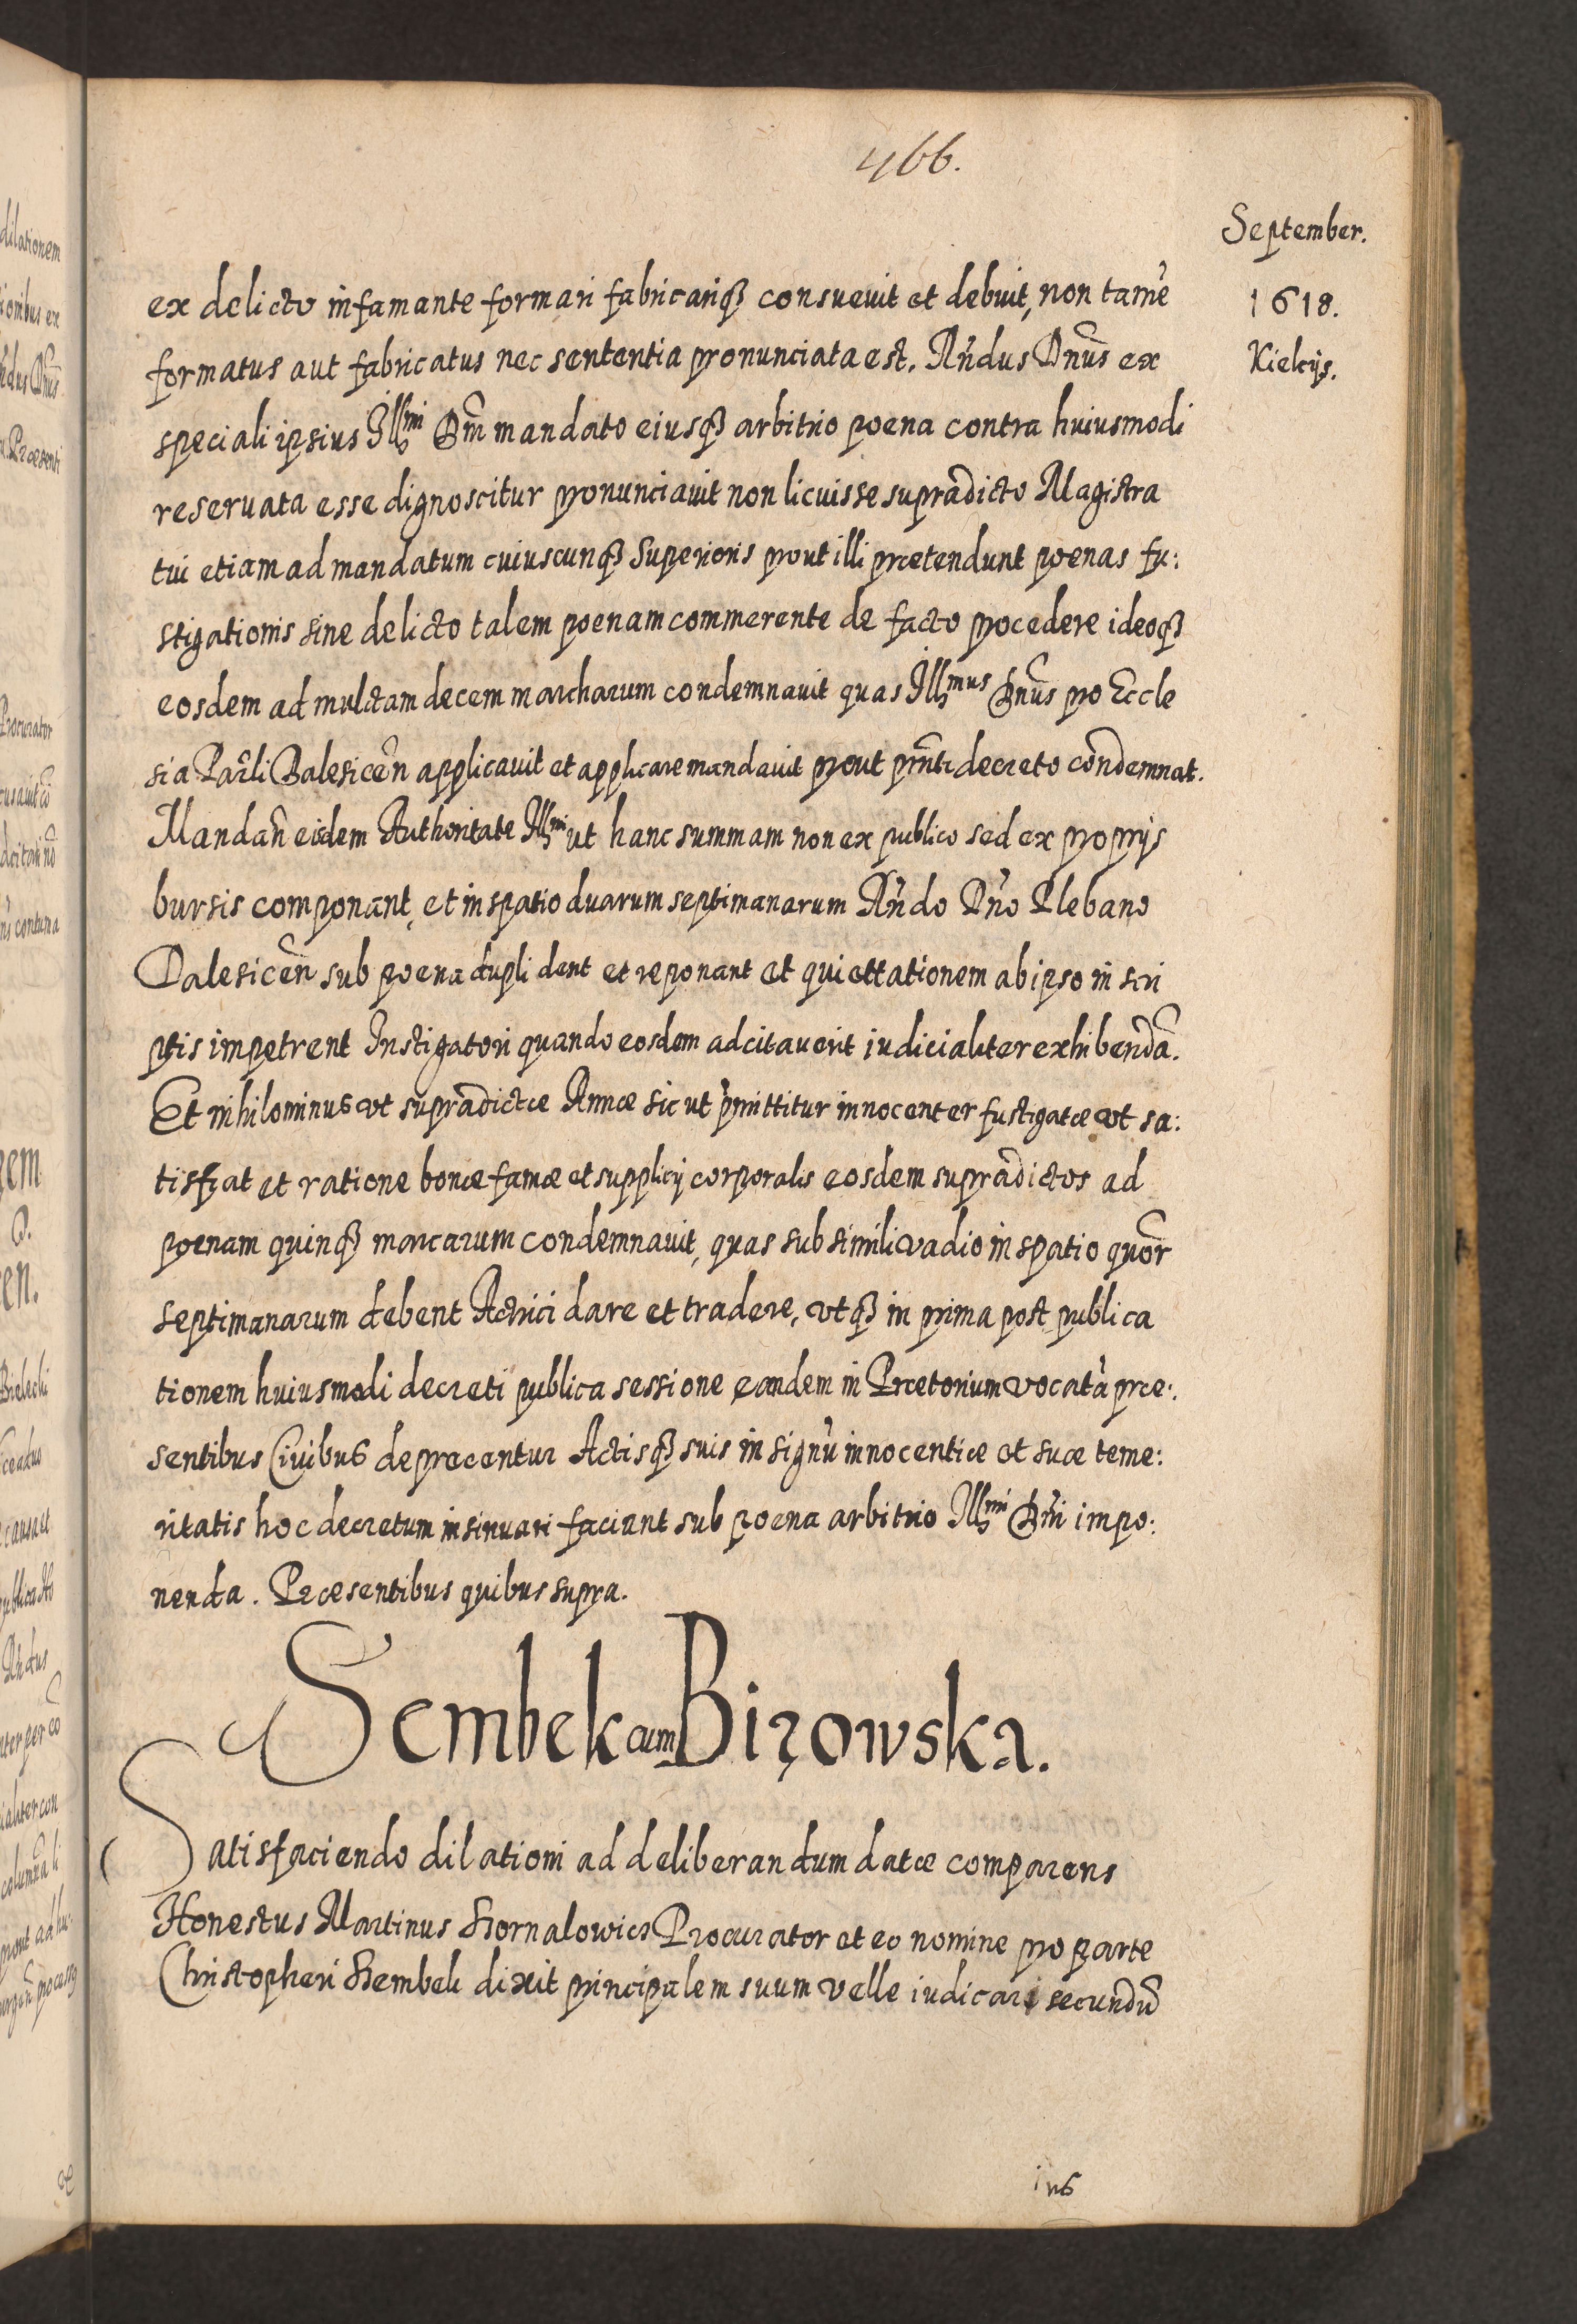 466.
September.
1618.
Kielcijs.
ex delicto infamante formari fabricariq3 consuevit et debuit, non tamē
formatus aut fabricatus nec sententia pronunciata est. Rñdus Dnūs ex
speciali ipsius Illmi Dni mandato eiusq3 arbitrio poena contra huiusmodi
reservata esse dignoscitur pronunciavit non licuisse supradicto Magistra
tui etiam ad mandatum cuiuscunq3 Superioris prout illi prætendunt poenas fu:
stigationis sine delicto talem poenam commerente de facto procedere ideoq3
eosdem ad mulctam decem marcharum condemnavit quas Illmus Dnūs pro Eccle
sia Parli Dalesiceñ applicavit et applicare mandavit prout pñti decreto condemnat.
Mandañ eisdem Authoritate Illmi ut hanc summam non ex publico sed ex proprijs
bursis componant, et in spatio duarum septimanarum Rñdo Dño Plebano
Dalesiceñ sub poena dupli dent et reponant et quiettationem ab ipso in scri
ptis impetrent Instigatori quando eosdem adcitaverit iudicialiter exhibendā.
Et nihilominus ut supradictæ Annæ sicut p̄mittitur innocenter fustigatæ ut sa:
tisfiat et ratione bonæ famæ et supplicij corporalis eosdem supradictos ad
poenam quinq3 marcarum condemnavit, quas sub simili vadio in spatio quor
septimanarum debent Actrici dare et tradere, utq3 in prima post publica
tionem huiusmodi decreti publica sessione eandem in Prætorium vocatā præ:
sentibus Civibus deprecentur Actisq3 suis in signū innocentiæ et suæ teme:
ritatis hoc decretum insinuari faciant sub poena arbitrio Illmi Dni impo:
nenda. Præsentibus quibus supra.
Sembek cum Bizowska.
Satisfaciendo dilationi ad deliberandum datæ comparens
Honestus Martinus Kornalowicz Procurator et eo nomine pro parte
Christopheri Sembek dixit principalem suum velle iudicari secundū
ius